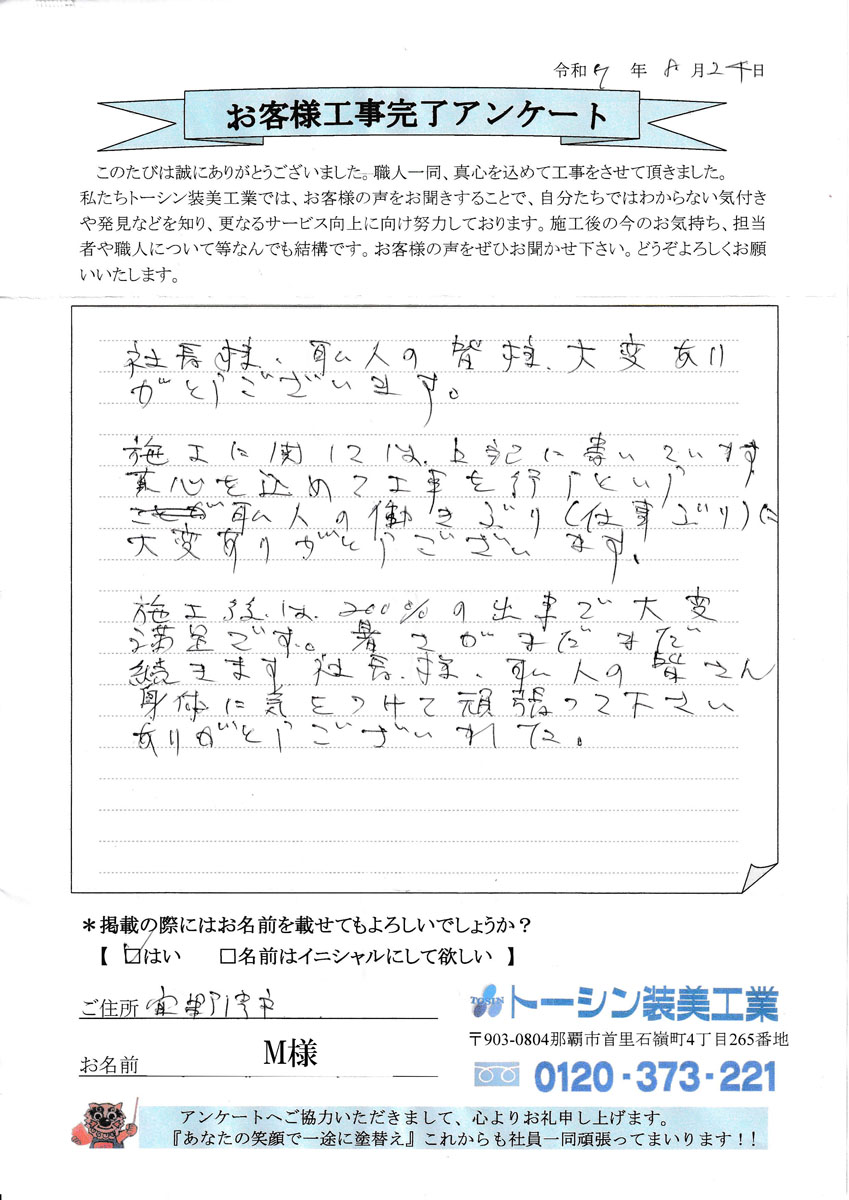 令和7年8月24日
お客様工事完了アンケート
このたびは誠にありがとうございました。職人一同、真心を込めて工事をさせて頂きました。
私たちトーシン装美工業では、お客様の声をお聞きすることで、自分たちではわからない気付き
や発見などを知り、更なるサービス向上に向け努力しております。施工後の今のお気持ち、担当
者や職人について等なんでも結構です。お客様の声をぜひお聞かせ下さい。どうぞよろしくお願
いいたします。
社長様、職人の皆様、大変あり
がとうございます。
施工に関しては、上記に書いています
真心を込めて工事を行うという
職人の働きぶり(仕事ぶり)に
大変ありがとうございます。
施工後は、200%の出来で大変
満足です。暑さがまだまだ
続きます 社長様、職人の皆さん
身体に気をつけて頑張って下さい
ありがとうございました。
＊掲載の際にはお名前を載せてもよろしいでしょうか？
【 ☑はい □名前はイニシャルにして欲しい 】
ご住所 宜野湾市
お名前 M様
TOSIN トーシン装美工業
〒903-0804那覇市首里石嶺町4丁目265番地
0120-373-221
アンケートへご協力いただきまして、心よりお礼申し上げます。
『あなたの笑顔で一途に塗替え』これからも社員一同頑張ってまいります！！